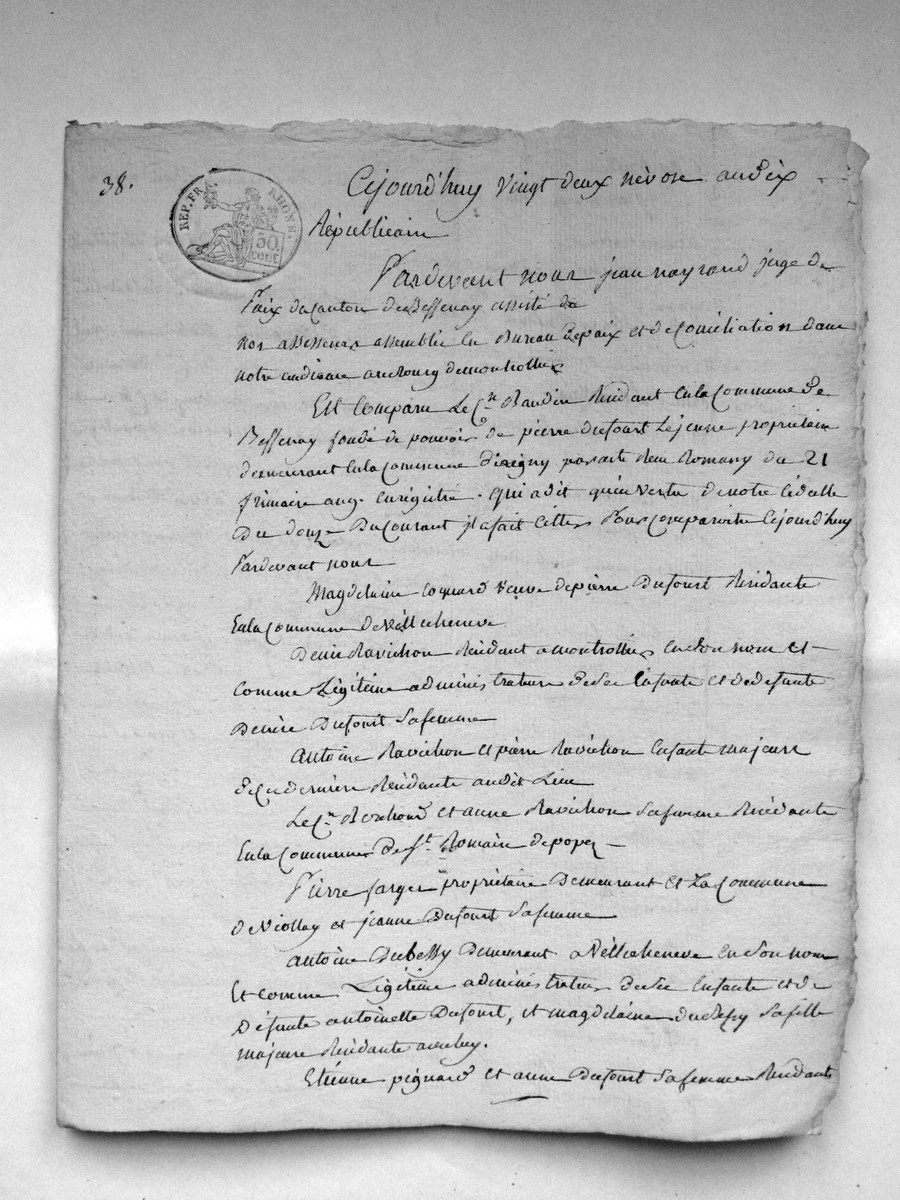 38.
REP. FR. RHONE.
50 cent
Cejourd'huy vingt deux nèvose an dix
Républicain
Pardevant nous jean nayrand juge de
Paix du canton de Bessenay assisté de
nos assesseurs assemblés en Bureau de paix et de conciliation dans
notre audiance au bourg de montrottier
Est comparu Le Cn. Baudin Residant en la Commune de
Bessenay fondé de pouvoir de pierre dufourt Le jeune propriétaire
demeurant en la Commune d'irigny par acte Reçu Romany du 21
frimaire an 9. enrégistré. qui a dit qu'en vertu de notre cédulle
Du douze Du courant il a fait citter Pour comparoitre cejourd'huy
Pardevant nous
Magdelaine coquard veuve de pierre Dufourt Residante
En la Commune de villecheneve
Denis Ravichon Residant a montrottier en son nom et
comme Légitime administrateur de ses Enfants et de defunte
Dufourt sa femme
Antoine Ravichon et pierre Ravichon Enfants majeurs
de ce dernière Résidants audit Lieu
Le Cn. et anne Ravichon sa femme Résidants
En la Commune de St. Romain de popey
Pierre farges propriétaire Demeurant et La Commune
de Viollay et jeanne Dufourt sa femme
Antoine Dubessy Demeurant a villecheneve en son nom
Et comme Légitime administrateur de ses Enfants et de
Défunte antoinette Dufourt, et magdelaine dubessy sa fille
majeure Résidante avec luy.
Etienne pignard et anne Dufourt sa femme Residants